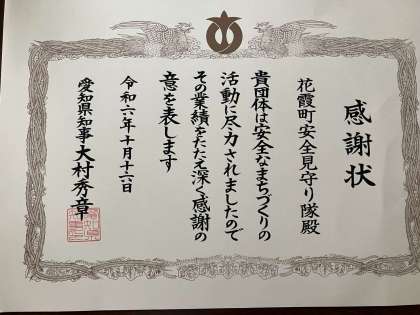 感謝状
花霞町安全見守り隊殿
貴団体は安全なまちづくりの
活動に尽力されましたので
その業績をたたえ深く感謝の
意を表します
令和六年十月十六日
愛知県知事大村秀章